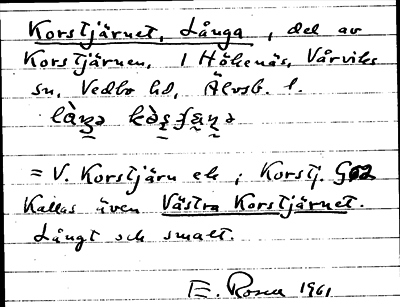 Korstjärnet, Långa, del av
Korstjärnen, i Hökenäs, Vårviks
sn, Vedbo hd, Älvsb. l.
= V. Korstjärn ek; Korstj. G
Kallas även Västra Korstjärnet.
Långt och smalt.
E. Rosen 1961